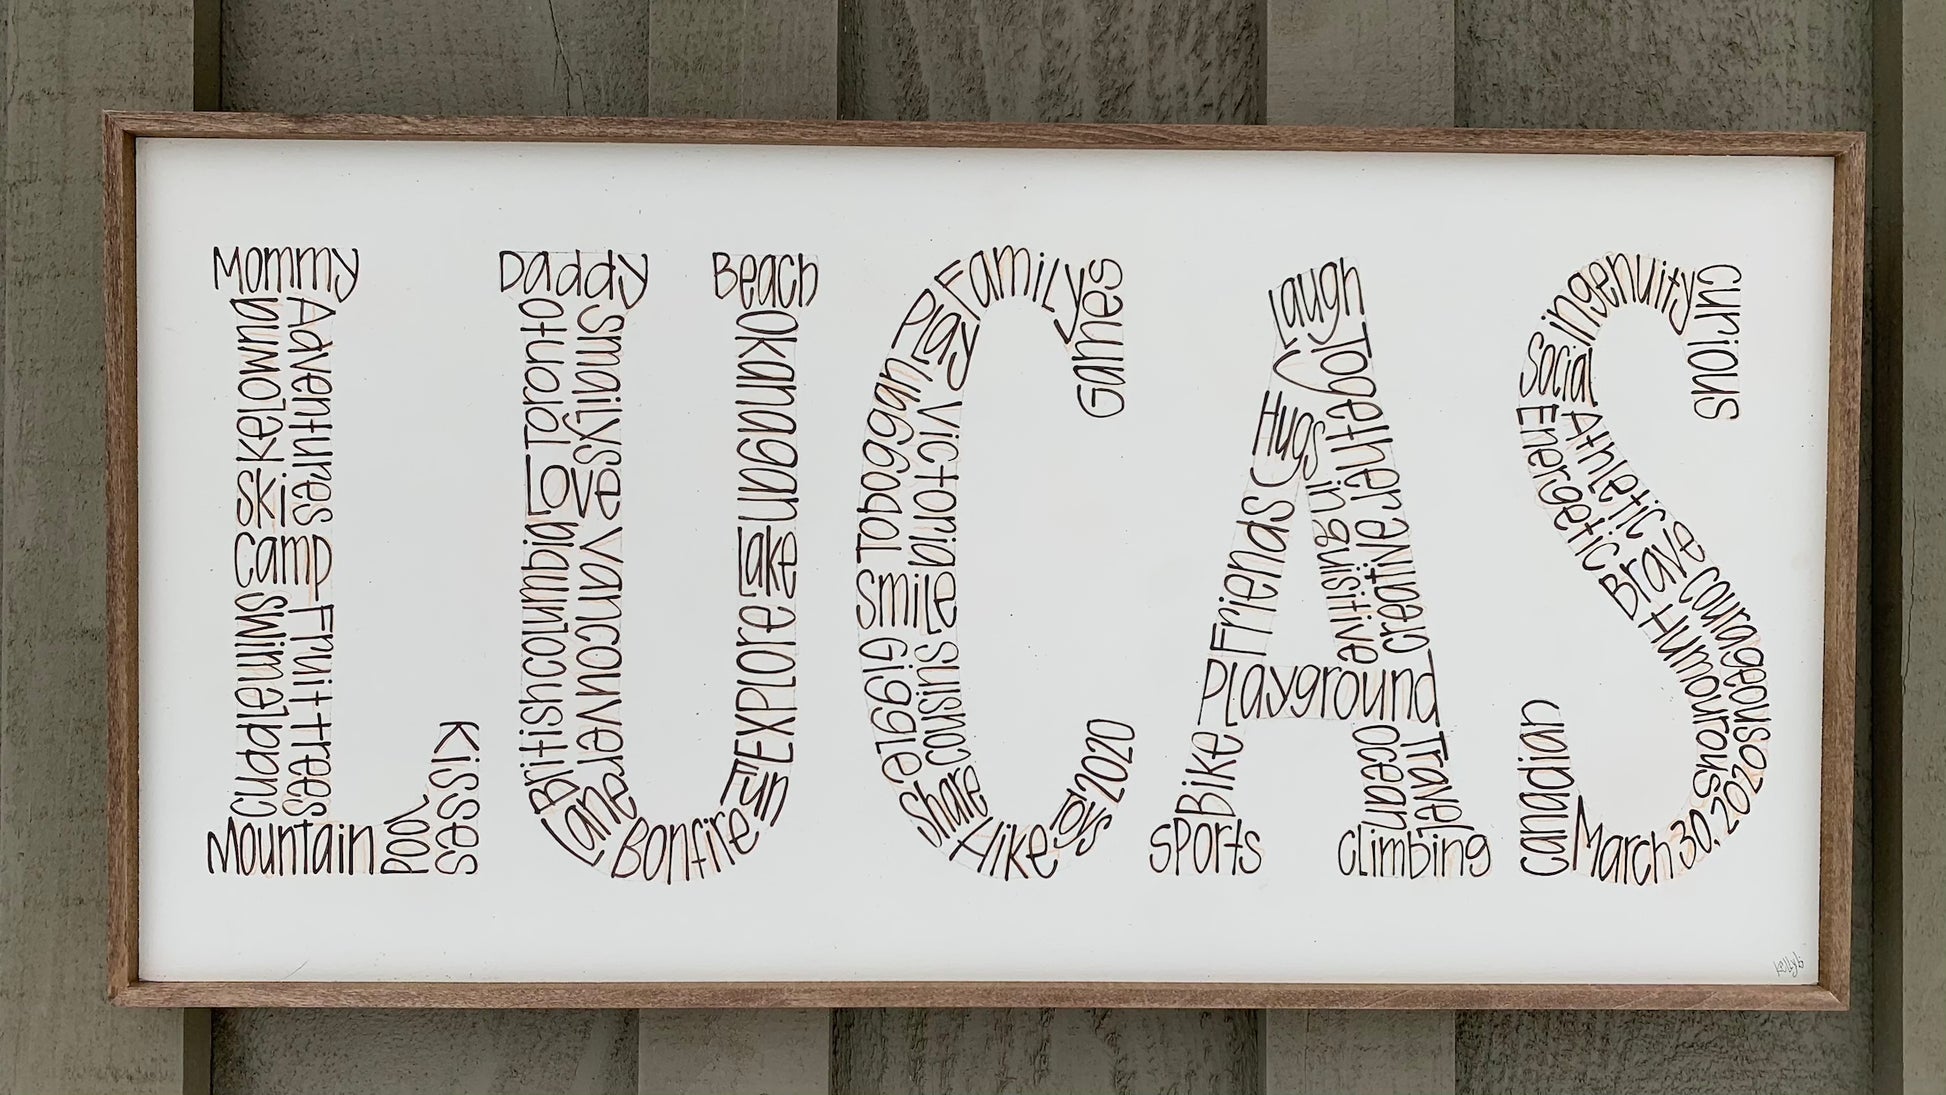 Mommy
Kelowna
Adventures
Ski
Camp
Cuddle
Swims
Fruit trees
Mountain
Pool
Kisses
Daddy
Toronto
Smalls
Yyse
Love
British columbia
Vancouver
Lane
Bonfire
Fun
Explore
Lake
Okanagan
Beach
Games
Family
Play
Toboggan
Victoria
Smile
Giggle
cousins
Share
Hike
Toys
2020
Laugh
Together
Hugs
Friends
Playground
Bike
sports
Inquisitive
Jayjay
creative
ocean
Travel
climbing
curious
ingenuity
Social
Energetic
Athletic
Brave
courageous
Humourous
March 30, 2020
canadian
kellyb